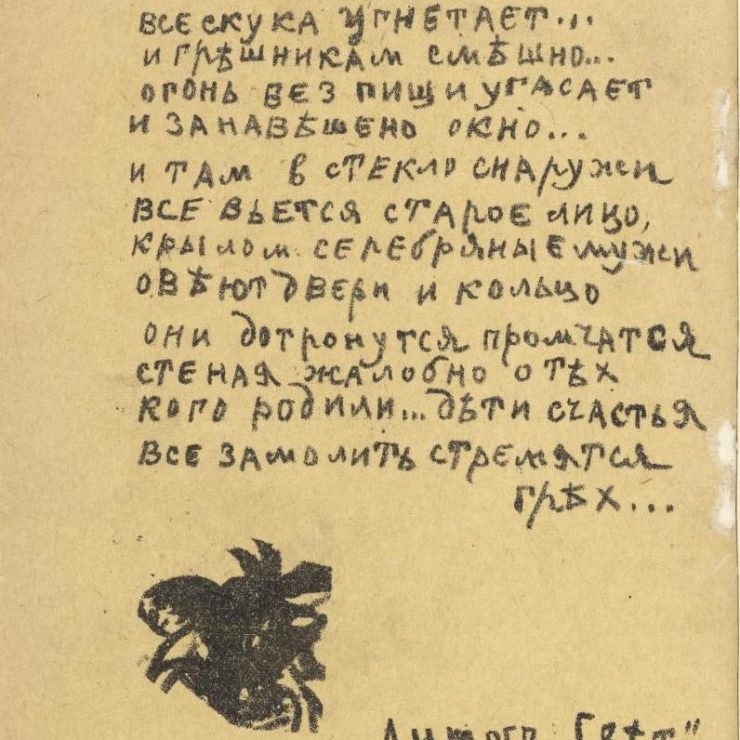 ВСЕ СКУКА УГНЕТАЕТ...
И ГРѢШНИКАМ СМѢШНО...
ОГОНЬ БЕЗ ПИЩИ УГАСАЕТ
И ЗАНАВѢШЕНО ОКНО...
И ТАМ В СТЕКЛО СНАРУЖИ
ВСЕ ВЬЕТСЯ СТАРОЕ ЛИЦО,
КРЫЛОМ СЕРЕБРЯНЫЕ МУЖИ
ОВѢЮТ ДВЕРИ И КОЛЬЦО
ОНИ ДОТРОНУТСЯ ПРОМЧАТСЯ
СТЕНАЯ ЖАЛОБНО О ТѢХ
КОГО РОДИЛИ... ДѢТИ СЧАСТЬЯ
ВСЕ ЗАМОЛИТЬ СТРЕМЯТСЯ
ГРѢХ...